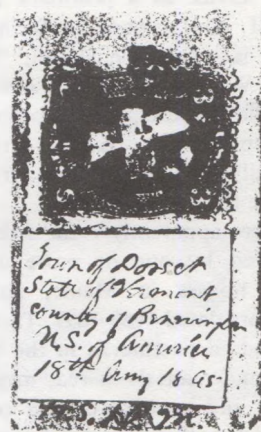 Town of Dorset
State of Vermont
County of Bennington
U.S. of America
18th Aug 1865